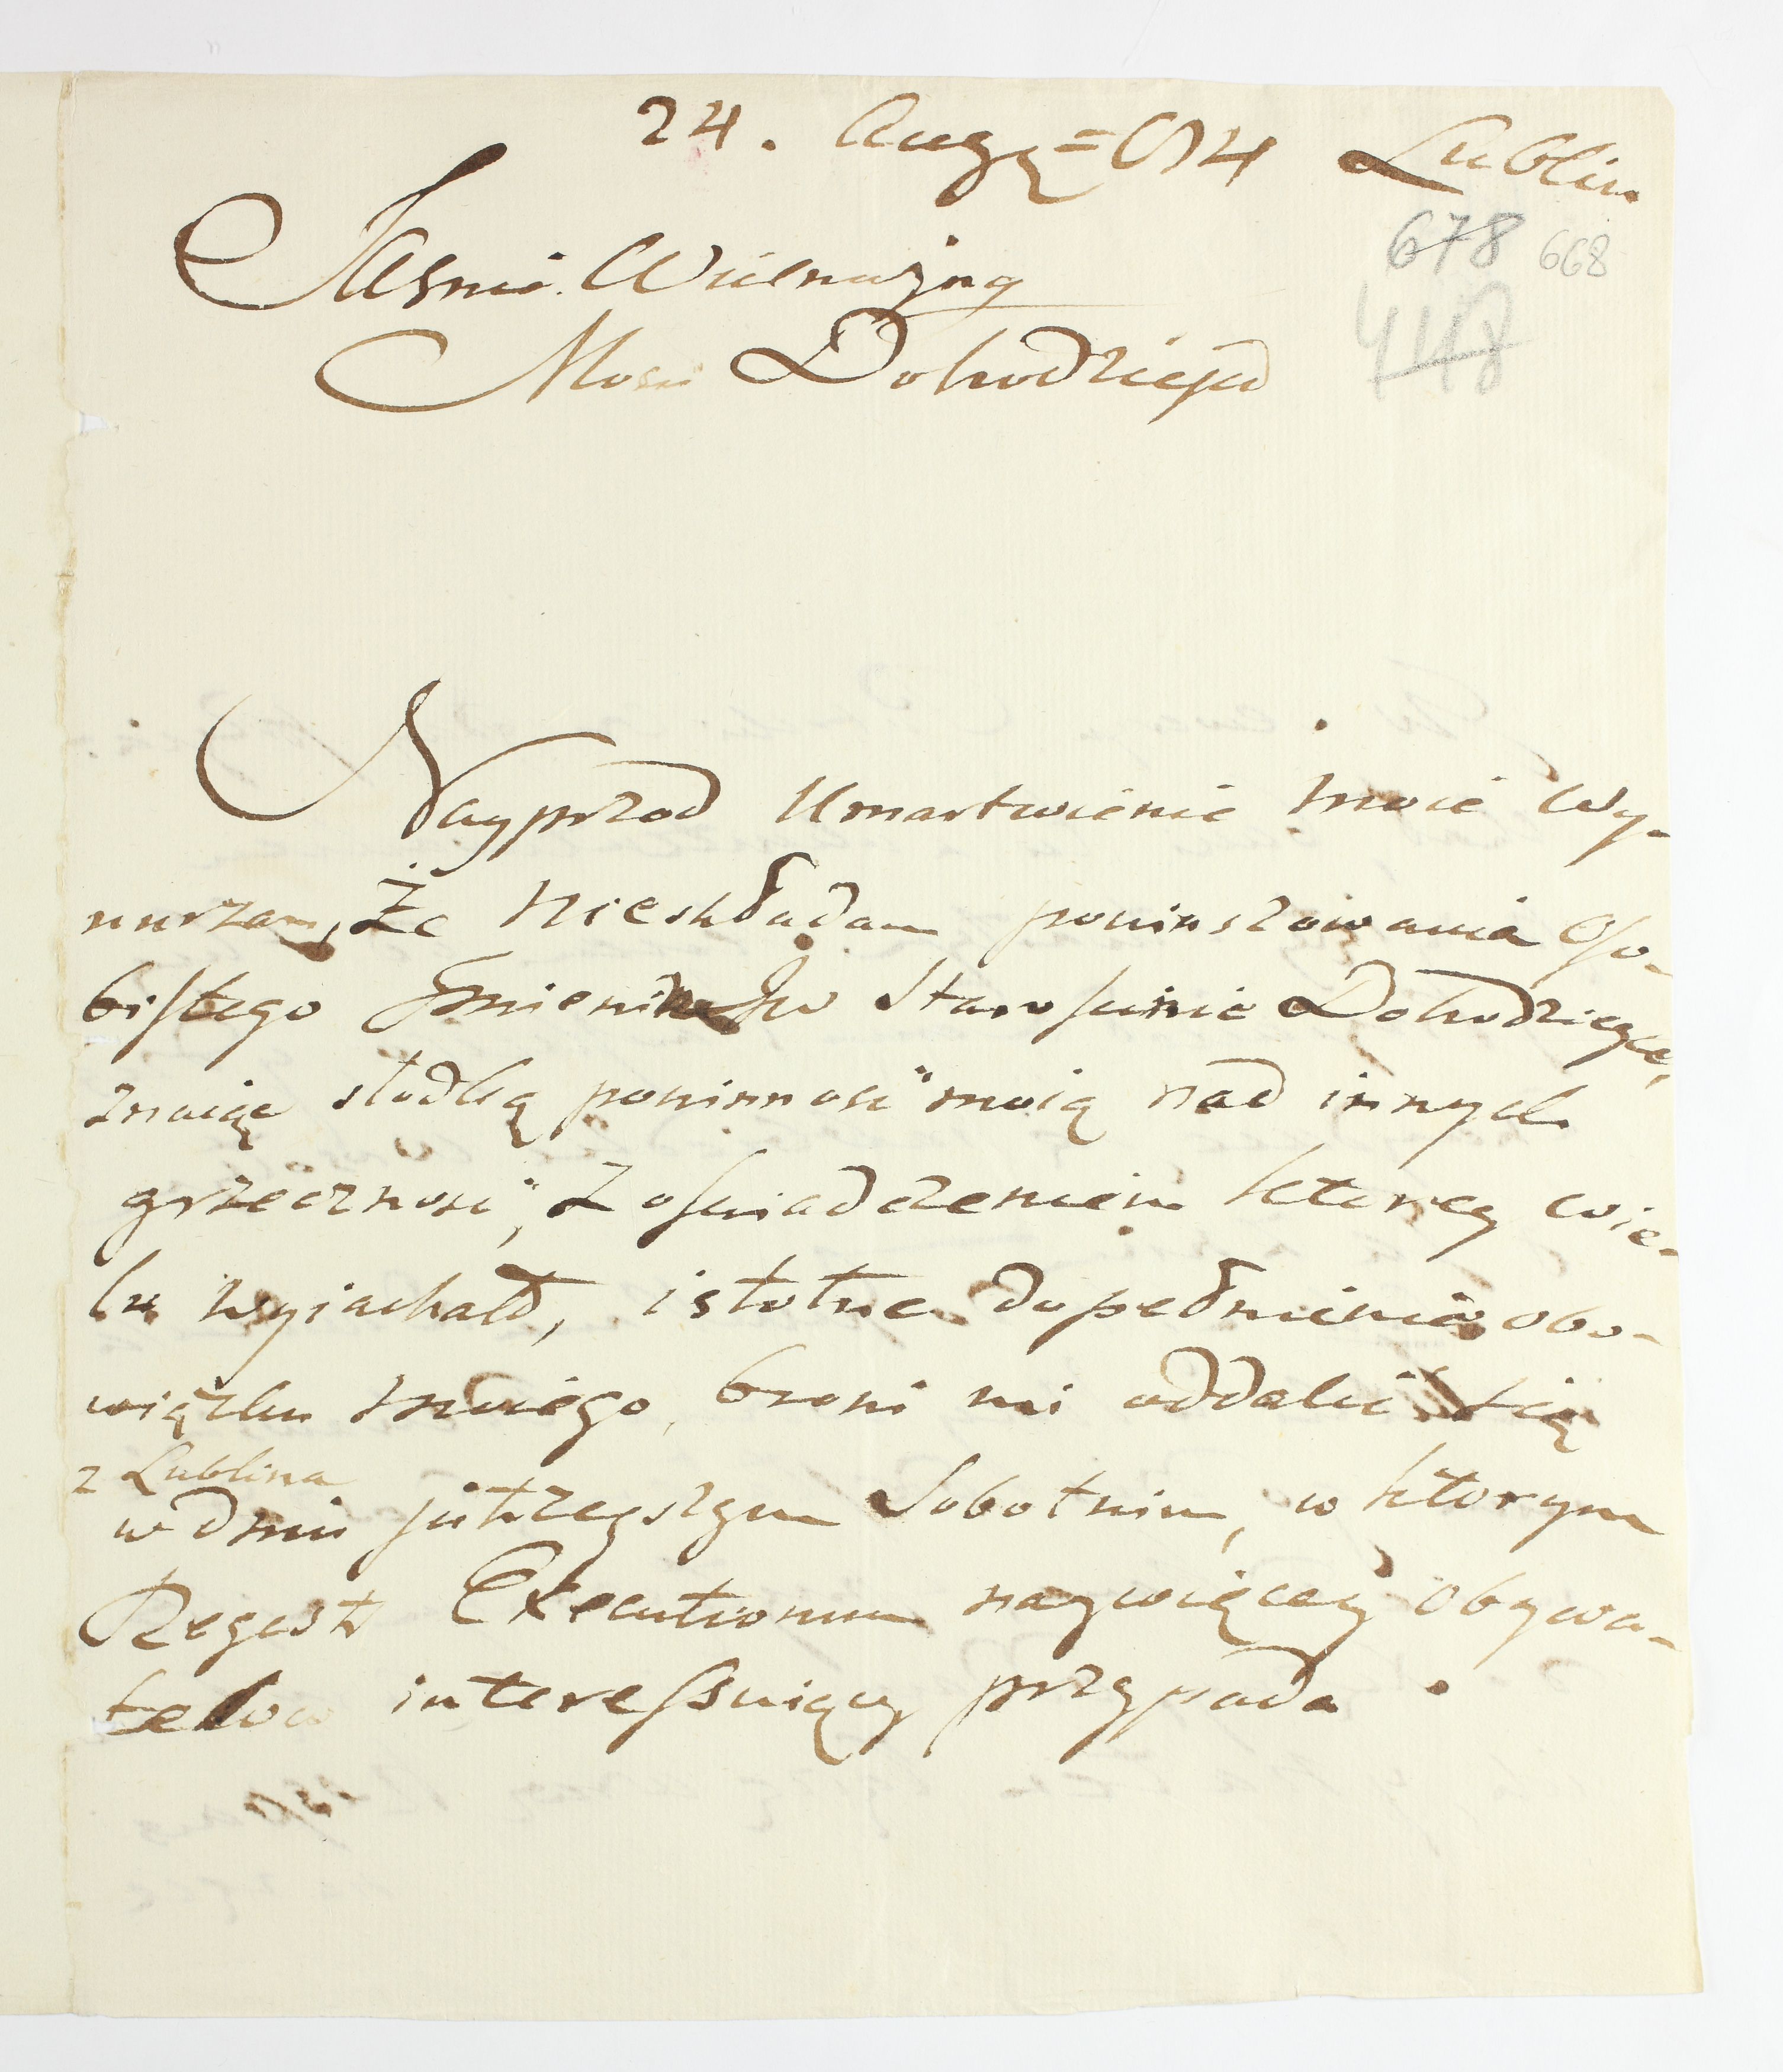 24. Aug = Lublin
678 668
Jasnie Wielmożny
448
Mosci Dobrodzieju
Nayprzod Umartwienie moie Wy-
nurzam, Że Nieskładam powinszowania Oso-
bistego Jmienin Jw Staroscinie Dobrodzieyce,
znaiąc słodką powinnosć moią nad innych
grzecznosć, z oswiadczeniem ktorey wie-
lu wyiachało, istotne dopełnienia obo-
wiązku moiego, broni mi oddalić się
z Lublina
w dniu jutrzeyszym Sobotnim, w ktorym
Regestr Executionum naywięcey Obywa-
telow interessuiący przypada .